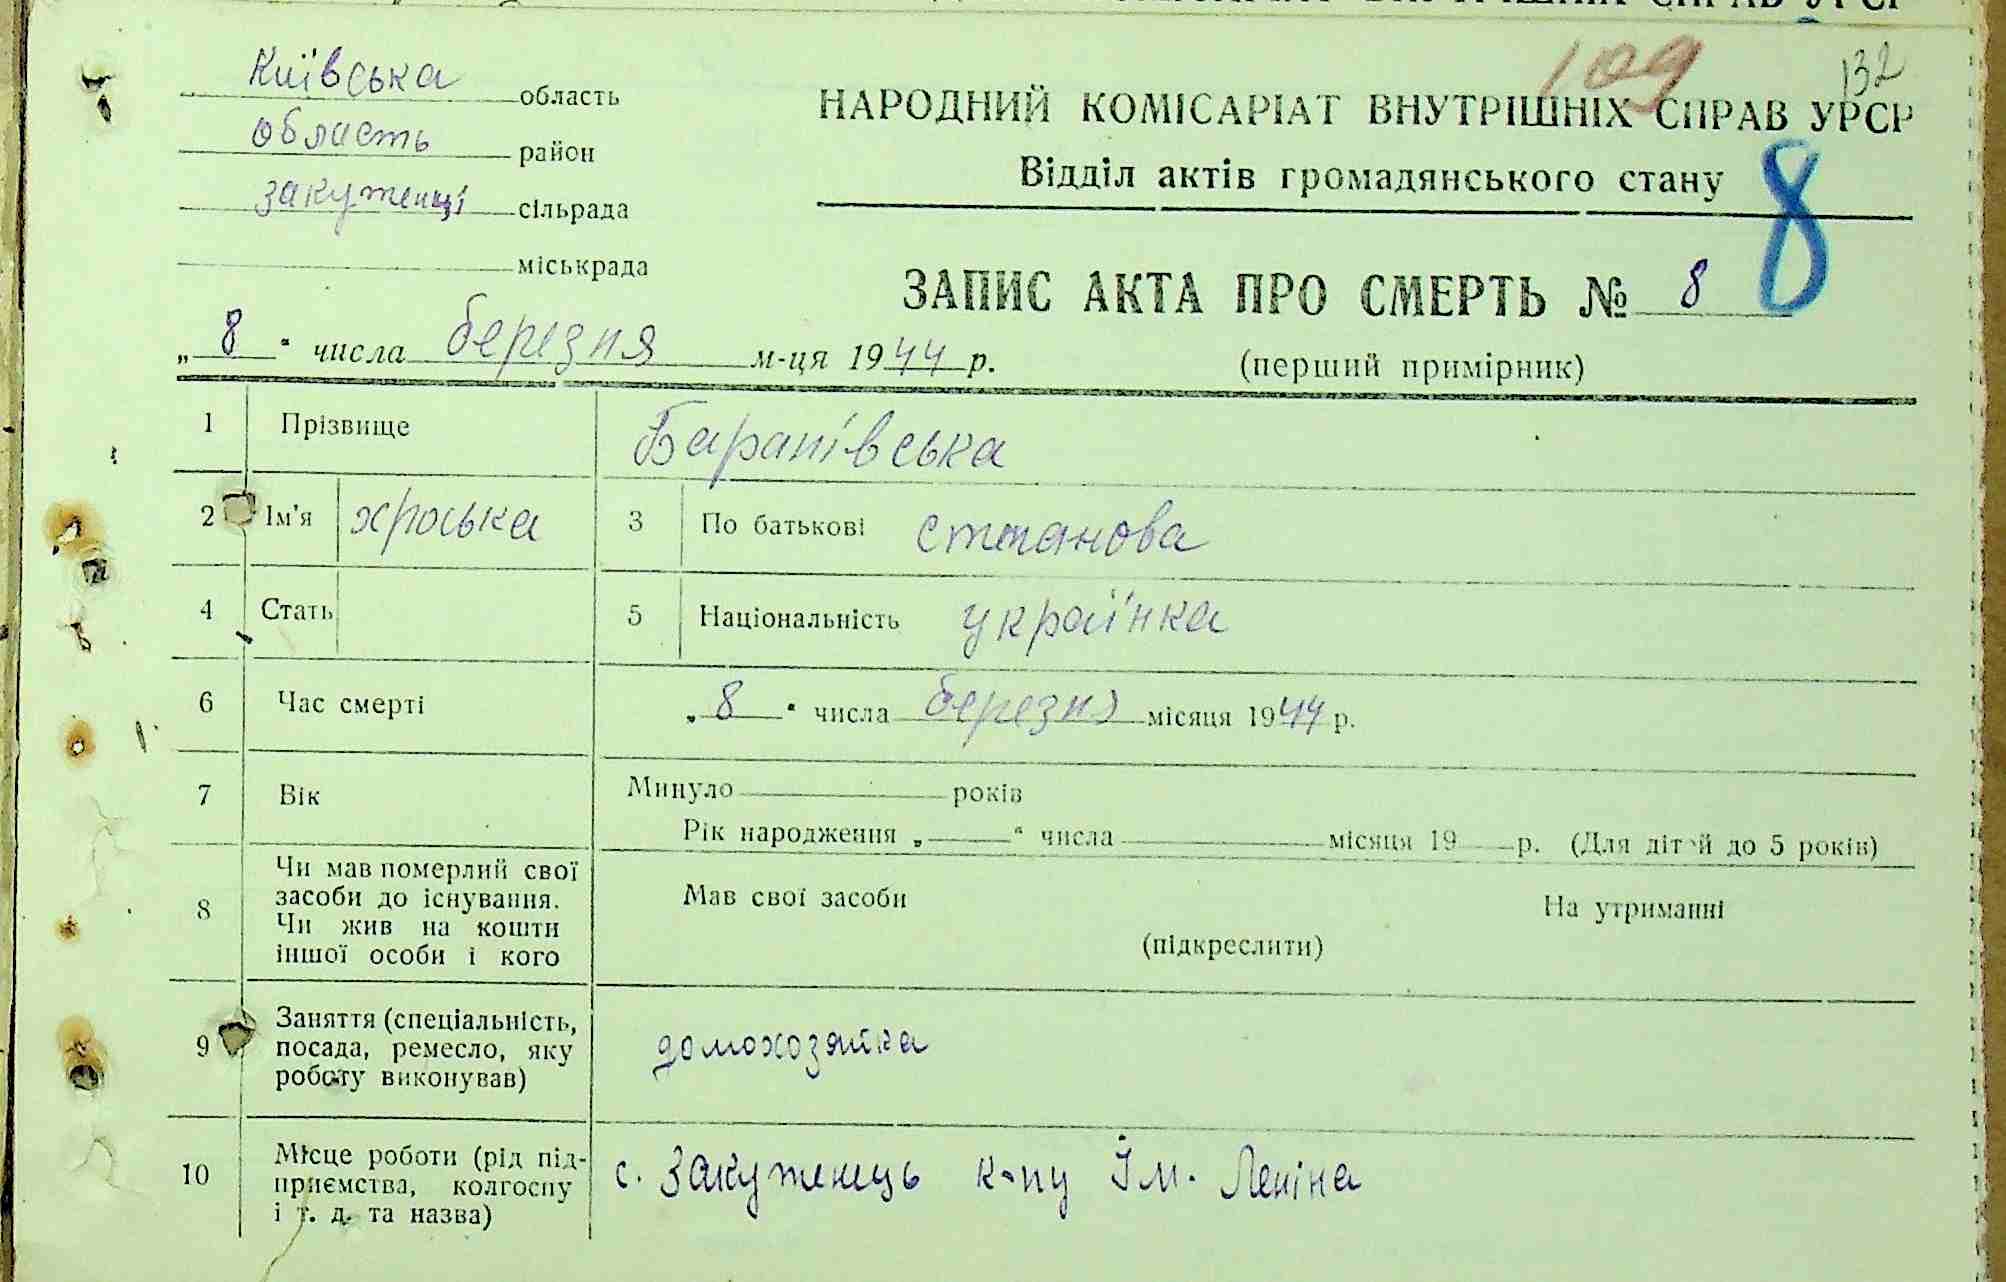 109 132
Київська область
НАРОДНИЙ КОМІСАРІАТ ВНУТРІШНІХ СПРАВ УРСР
область район
Відділ актів громадянського стану
закуженці сільрада
міськрада
ЗАПИС АКТА ПРО СМЕРТЬ № 8 8
„ 8 “ числа березня м-ця 1944 р.
(перший примірник)
1 Прізвище Баранівська
2 Ім'я хроська 3 По батькові степанова
4 Стать 5 Національність українка
6 Час смерті „ 8 “ числа березня місяця 1944 р.
7 Вік Минуло років
Рік народження „ “ числа місяця 19 р. (Для дітей до 5 років)
8 Чи мав померлий свої
засоби до існування.
Чи жив на кошти
іншої особи і кого
Мав свої засоби На утриманні
(підкреслити)
9 Заняття (спеціальність,
посада, ремесло, яку
роботу виконував)
домохозяйка
10 Місце роботи (рід під-
приємства, колгоспу
і т. д. та назва)
с. Закуженець к-пу Ім. Леніна